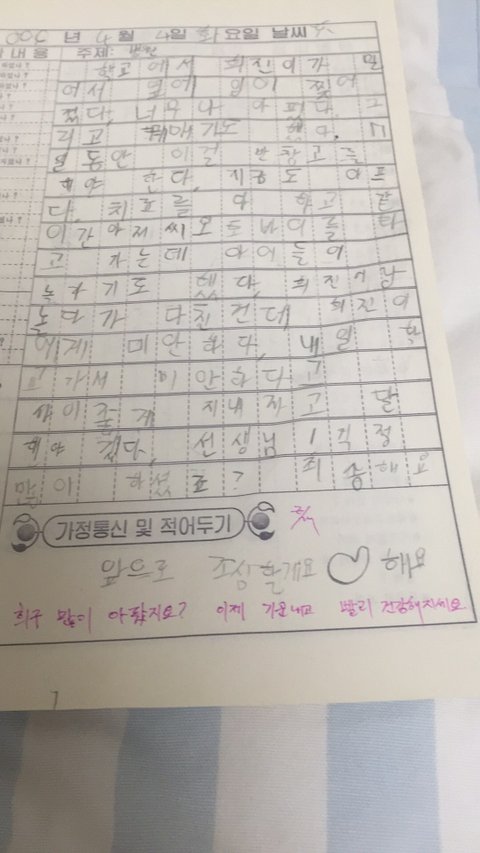 년 4월 4일 화요일 날씨
내용 주제:
학교에서 희진이가 밀
어서 입에 입이 찢어
졌다. 너무나 아팠다. 그
리고 꿰매기도 했다. 일
일 동안 이걸 반창고를
해야 한다. 지금도 아프
다. 치료를 하고 같
이 간 아저씨 오토바이를 타
고 가는데 아이들이
놀라기도 했다. 희진이랑
놀다가 다친건데 희진이
에게 미안하다. 내일 학
교 가서 미안하다고
사이좋게 지내자고 말
해야 겠다. 선생님 걱정
많이 하셨죠? 죄송해요
가정통신 및 적어두기
앞으로 조심할게요 ♡해요
많이 아팠지요? 이제 기운내고 빨리 건강해지세요